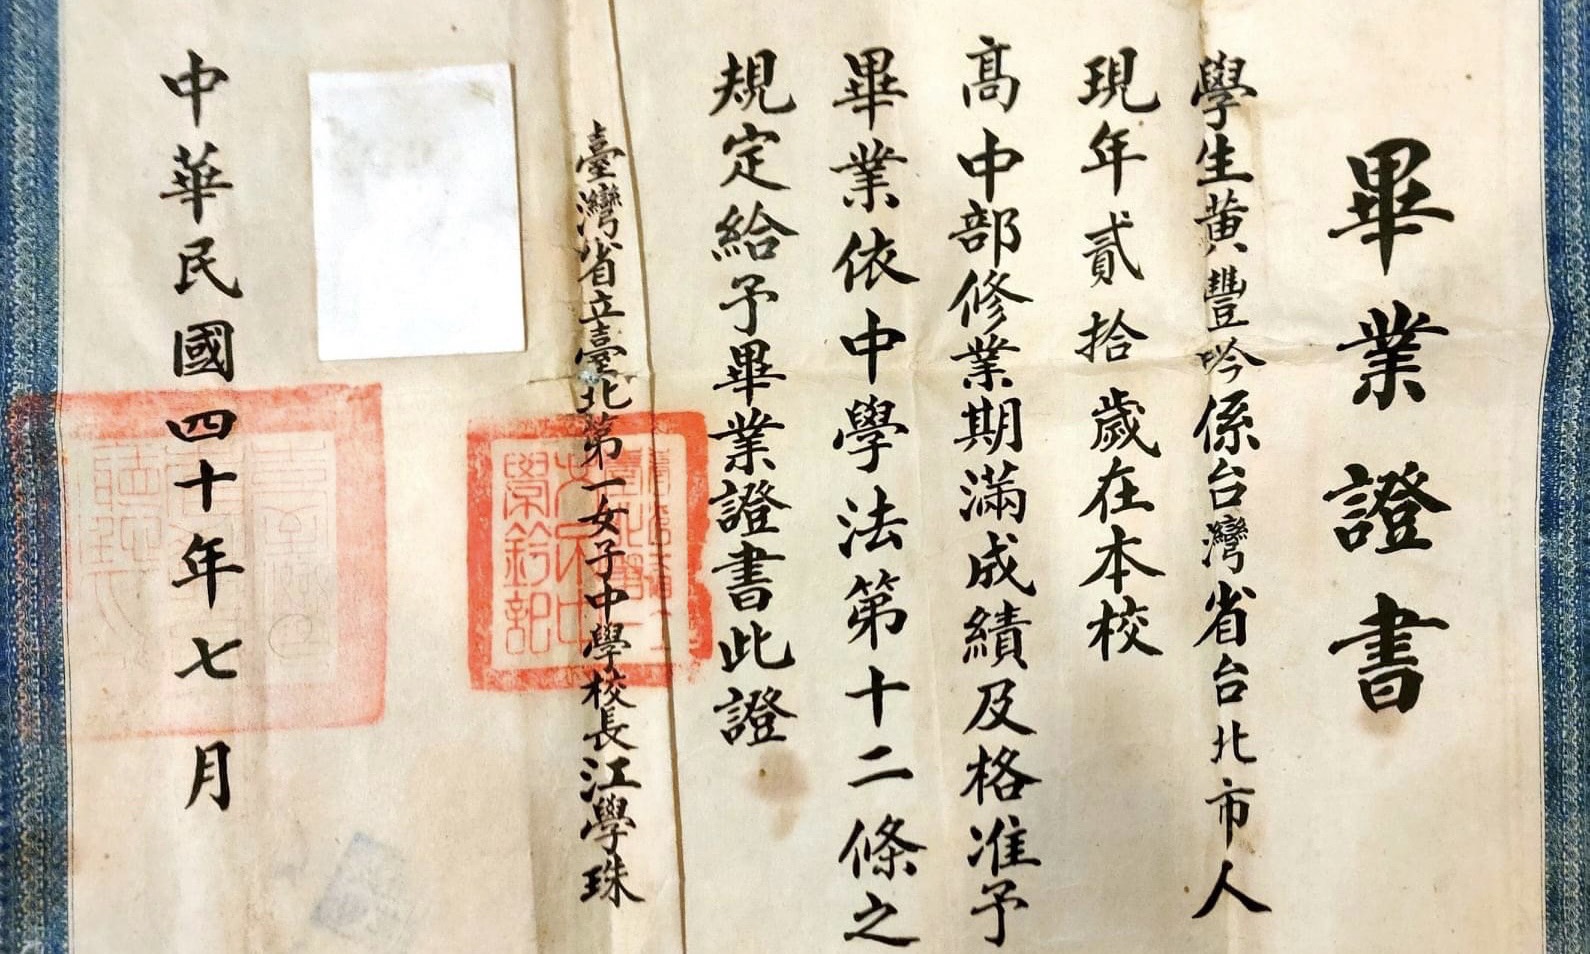 畢業證書
學生黃豐吟係台灣省台北市人
現年貳拾歲在本校
高中部修業期滿成績及格准予
畢業依中學法第十二條之
規定給予畢業證書此證
臺灣省立臺北第一女子中學校長江學珠
中華民國四十年七月